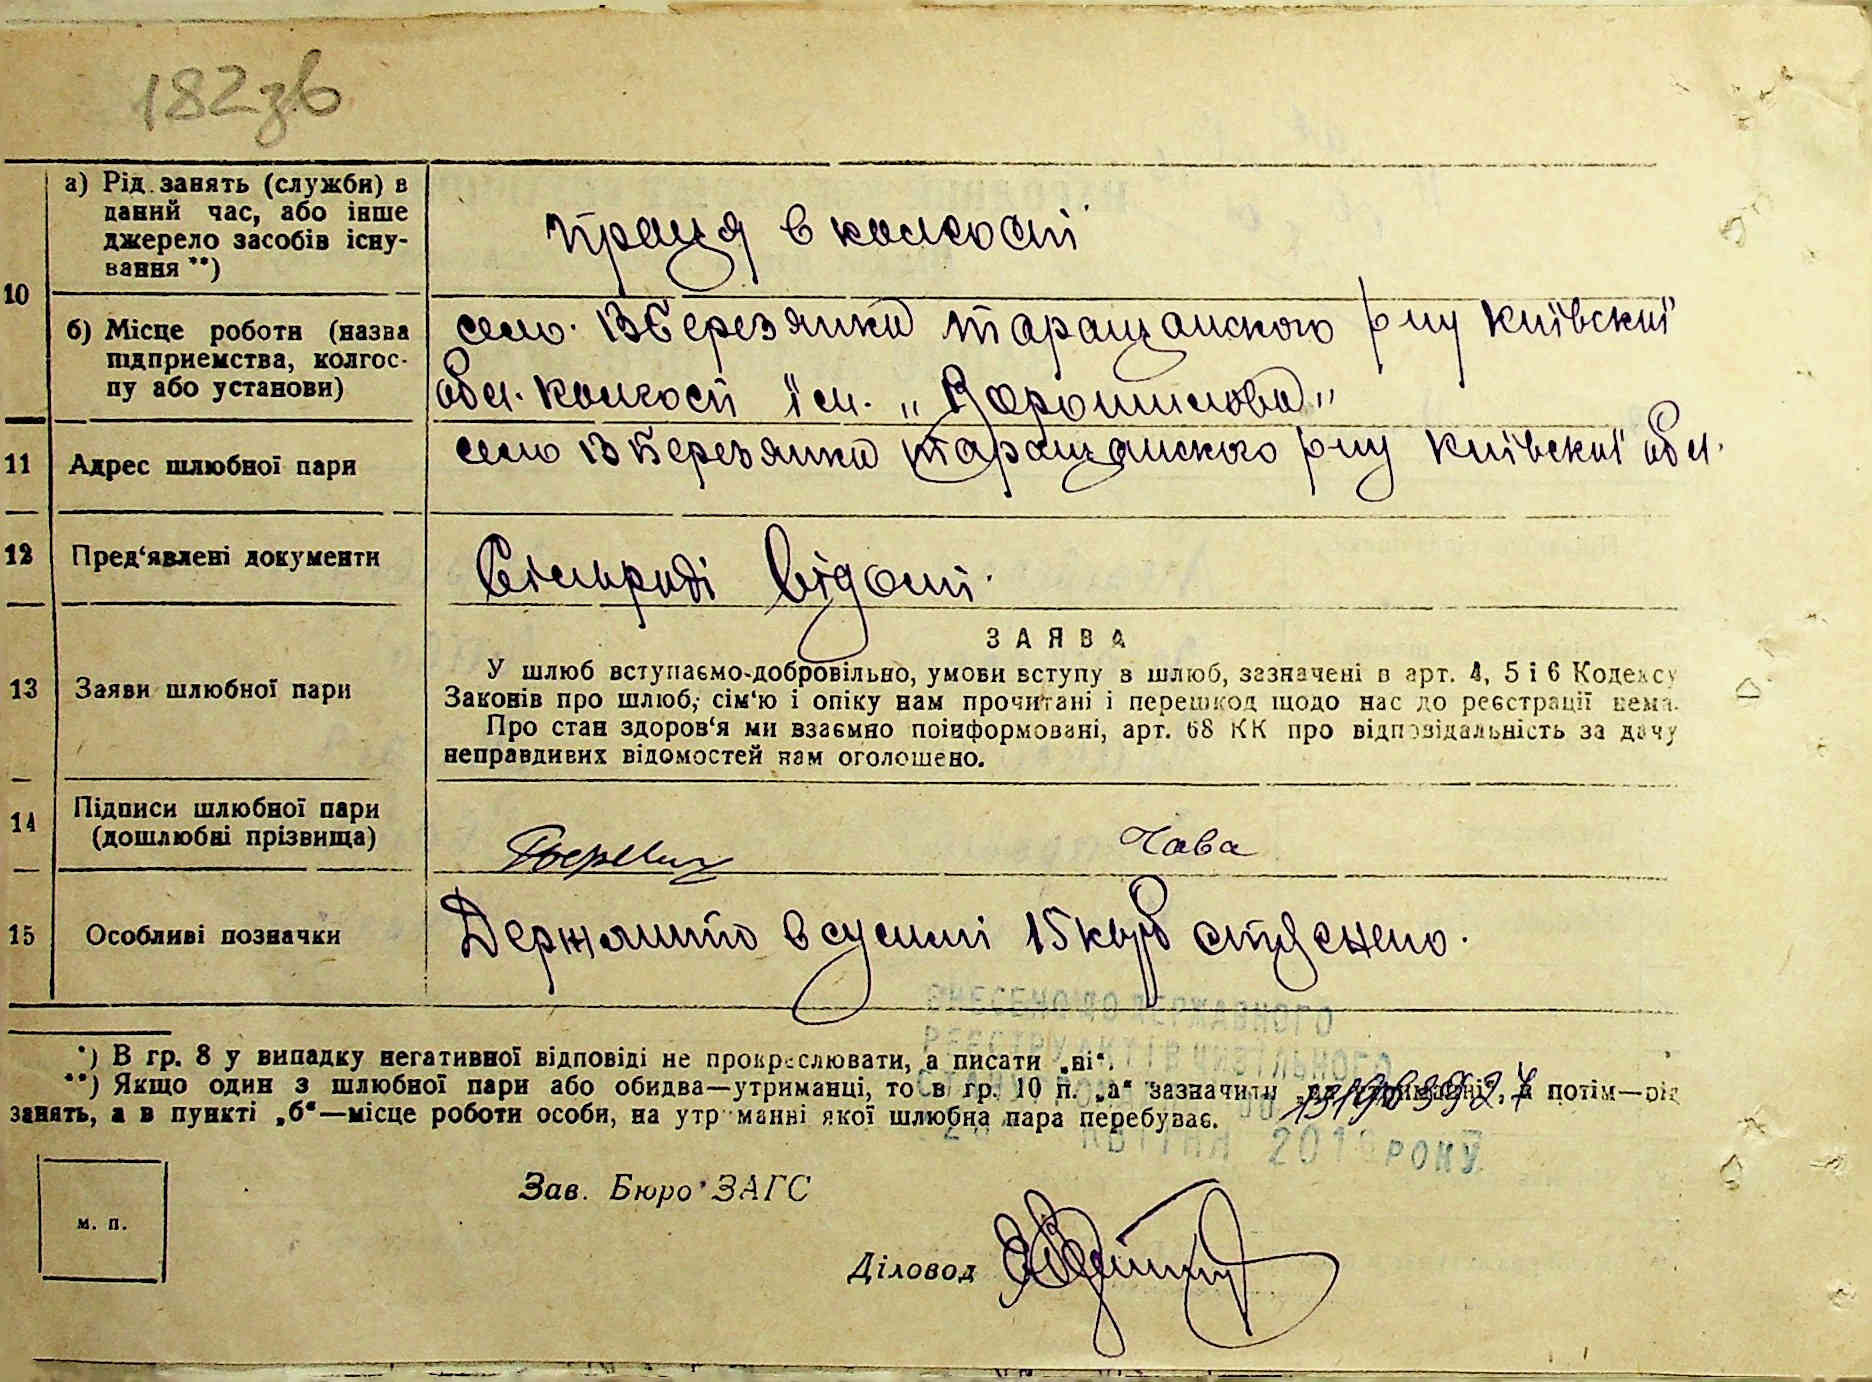 182зв
а) Рід занять (служби) в
даний час, або інше
джерело засобів існу-
вання **)
праця в колгоспі
10
б) Місце роботи (назва
підприємства, колгос-
пу або установи)
село Березянка таращанского р-ну Київскиї
обл. колгосп їм. „Ворошилова"
11
Адрес шлюбної пари
село Березянка таращанского р-ну Київскиї обл.
12
Пред'явлені документи
13
Заяви шлюбної пари
ЗАЯВА
У шлюб вступаємо-добровільно, умови вступу в шлюб, зазначені в арт. 4, 5 і 6 Кодексу
Законів про шлюб, сім'ю і опіку нам прочитані і перешкод щодо нас до реєстрації нема.
Про стан здоров'я ми взаємно поінформовані, арт. 68 КК про відповідальність за дачу
неправдивих відомостей нам оголошено.
14
Підписи шлюбної пари
(дошлюбні прізвища)
Чава
15
Особливі позначки
Держмито в сумі 15 крб стягнено.
*) В гр. 8 у випадку негативної відповіді не прокреслювати, а писати „ні".
**) Якщо один з шлюбної пари або обидва—утриманці, то в гр. 10 п. „а" зазначити „на утриманні", а потім—рід
занять, а в пункті „б"—місце роботи особи, на утриманні якої шлюбна пара перебуває.
ВНЕСЕНО ДО ДЕРЖАВНОГО
РЕЄСТРУ АКТІВ ЦИВІЛЬНОГО
КВІТНЯ РОКУ
м. п.
Зав. Бюро ЗАГС
Діловод